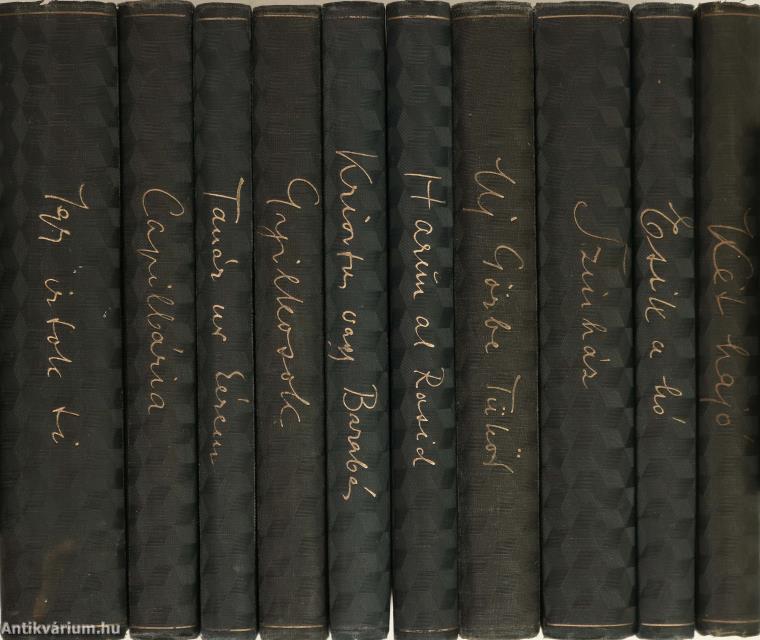 Így írtok ti
Capillária
Tanár úr kérem
Gyilkosok
Krisztus vagy Barabás
Harun al Rasid
Új Görbe Tükör
Színház
Esik a hó
Két hajó
Antikvárium.hu